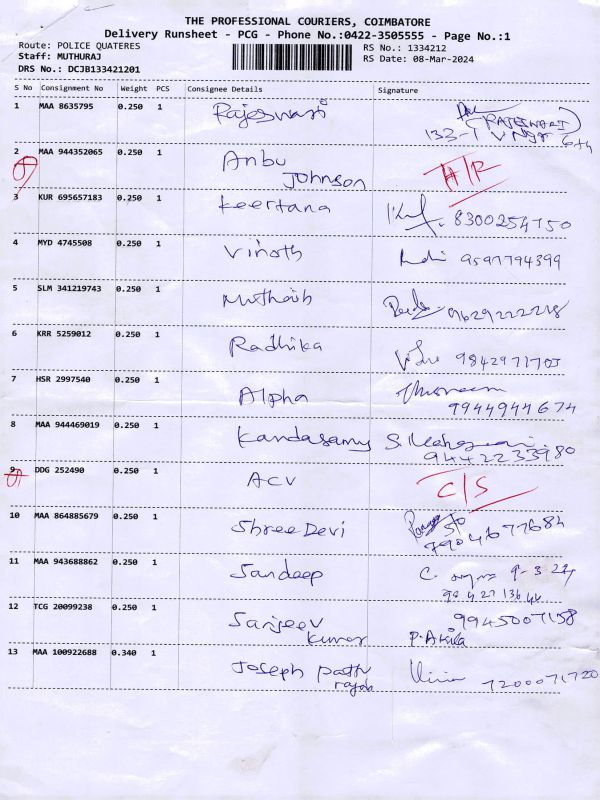 THE PROFESSIONAL COURIERS, COIMBATORE
Delivery Runsheet - PCG - Phone No.:0422-3505555 - Page No.:1
Route: POLICE QUATERES RS No.: 1334212
Staff: MUTHURAJ RS Date: 08-Mar-2024
DRS No.: DCJB133421201
S No Consignment No Weight PCS Consignee Details Signature
1 MAA 8635795 0.250 1 Rajeswari (RAJESWARI)
133-
2 MAA 944352065 0.250 1 Anbu Johnson H/R
3 KUR 695657183 0.250 1 Keertana 8300254750
4 MYD 4745508 0.250 1 Vinoth 9597794399
5 SLM 341219743 0.250 1 9629222218
6 KRR 5259012 0.250 1 Radhika
7 HSR 2997540 0.250 1 Alpha
9944944674
8 MAA 944469019 0.250 1 Kandasamy
9442233980
9 DDG 252490 0.250 1 ACV C/S
10 MAA 864885679 0.250 1 Shree Devi S/O
7904677684
11 MAA 943688862 0.250 1 Sandeep C. 9-3-24
12 TCG 20099238 0.250 1 Sanjeev Kumar 9945007158
P. Akila
13 MAA 100922688 0.340 1 Joseph 7200071720